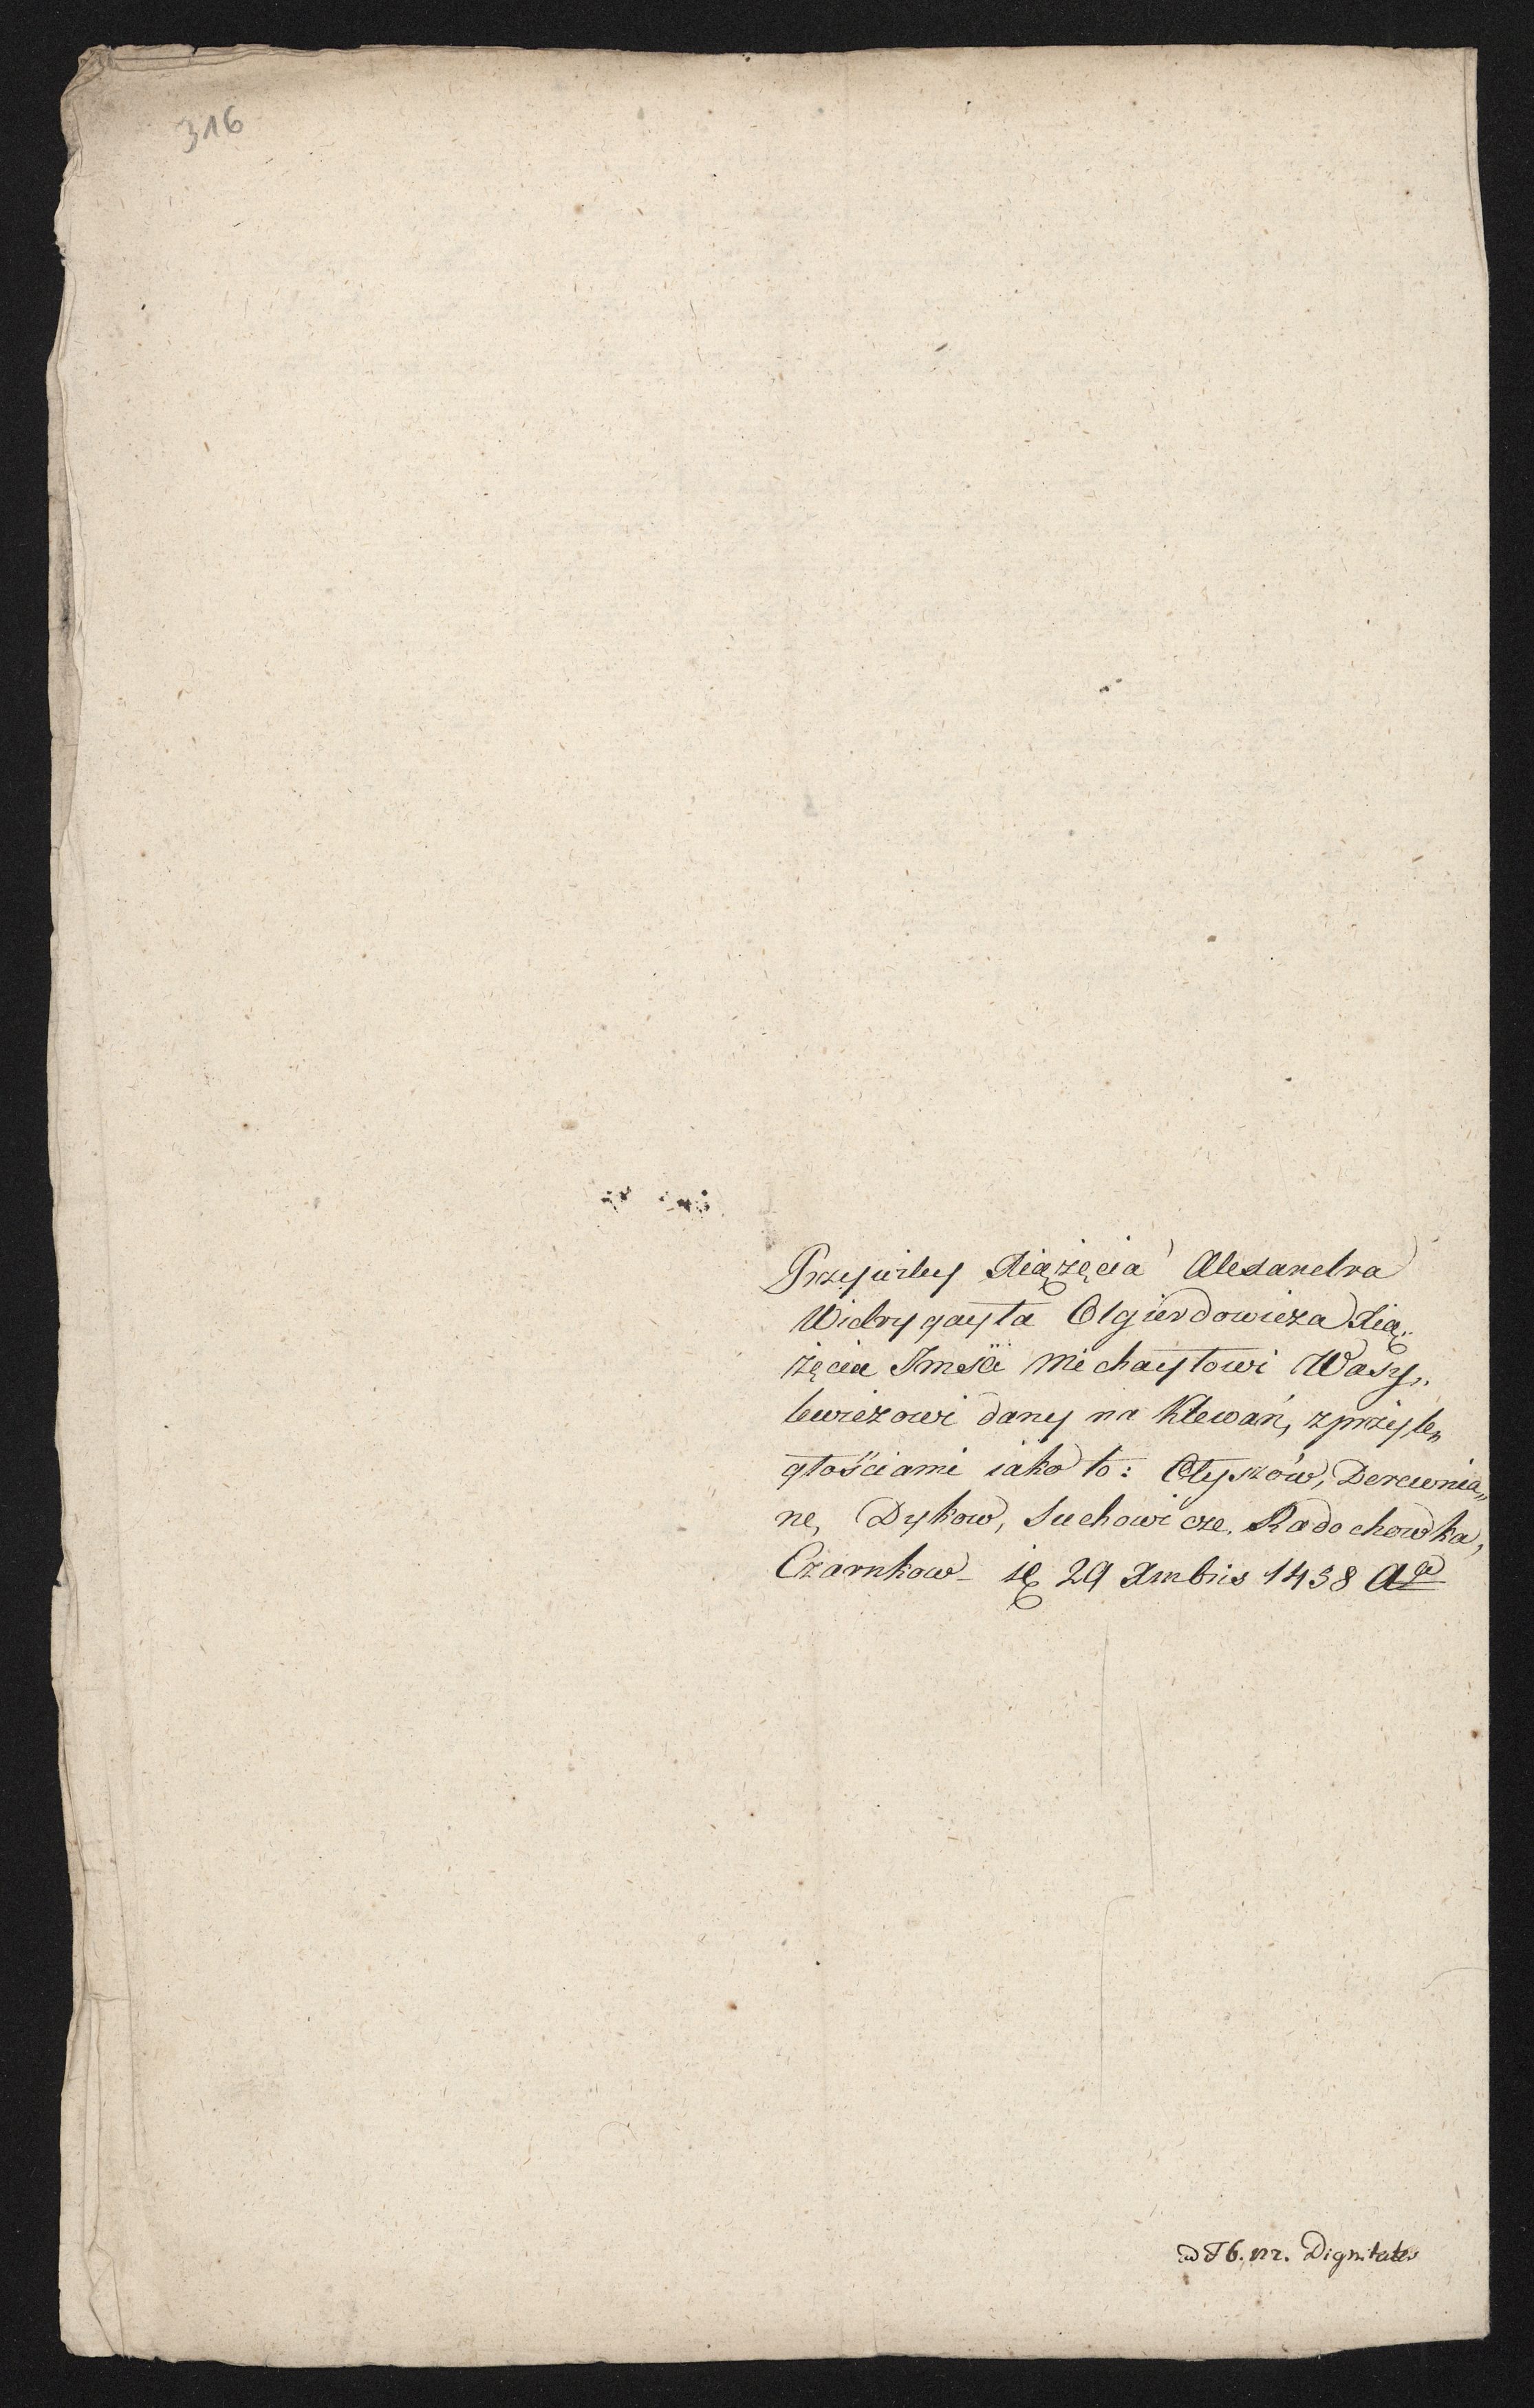 316
Przywiley Xiążęcia Alexandra
Widrygayła Olgierdowicza Xią„
żęcia Jmści Michayłowi Wasy„
lewiczowi dany na Klewań, z przyle„
głościami iako to: Ołyszów, Derewnia„
ne, Dykow, Suchowicze, Radochowka,
Czarnkow 29 Xmbris 1438 Aº
ad T6. nr. Dignitates